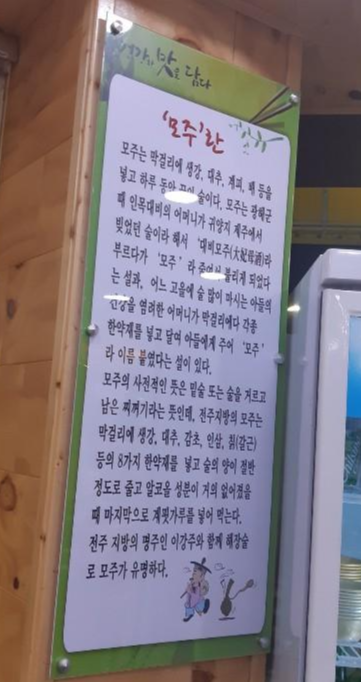 맛을 담다
'모주'란
모주는 막걸리에 생강, 대추, 계피, 배 등을
넣고 하루 동안 끓인 술이다. 모주는 광해군
때 인목대비의 어머니가 귀양지 제주에서
빚었던 술이라 해서 '대비모주(大妃母酒)라
부르다가 '모주' 라 줄여서 불리게 되었다
는 설과, 어느 고을에 술 많이 마시는 아들의
건강을 염려한 어머니가 막걸리에다 각종
한약재를 넣고 달여 아들에게 주어 '모주'
라 이름 붙였다는 설이 있다.
모주의 사전적인 뜻은 밑술 또는 술을 거르고
남은 찌꺼기라는 뜻인데, 전주지방의 모주는
막걸리에 생강, 대추, 감초, 인삼, 칡(갈근)
등의 8가지 한약재를 넣고 술의 양이 절반
정도로 줄고 알코올 성분이 거의 없어졌을
때 마지막으로 계핏가루를 넣어 먹는다.
전주 지방의 명주인 이강주와 함께 해장술
로 모주가 유명하다.